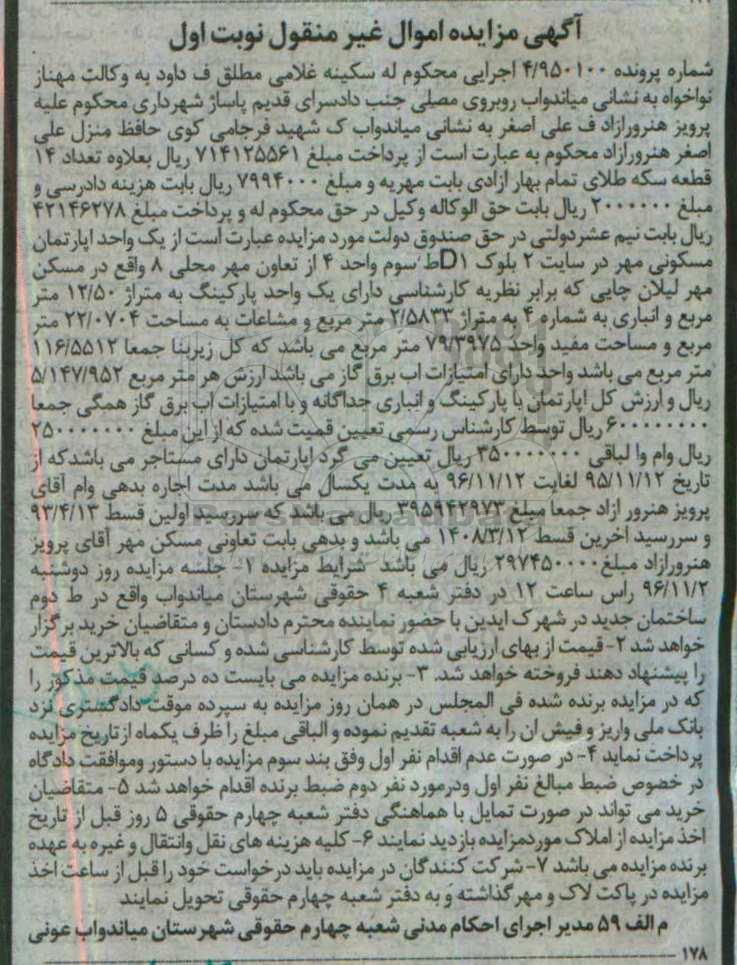 آگهی مزایده اموال غیر منقول نوبت اول
شماره پرونده ۴/۹۵۰۱۰۰ اجرایی محکوم له سکینه غلامی مطلق ف داود به وکالت مهناز
نواخواه به نشانی میاندواب روبروی مصلی جنب دادسرای قدیم پاساژ شهرداری محکوم علیه
پرویز هنرورازاد ف علی اصغر به نشانی میاندواب ک شهید فرجامی کوی حافظ منزل علی
اصغر هنرورازاد محکوم به عبارت است از پرداخت مبلغ ۷۱۴۱۲۵۵۶۱ ریال بعلاوه تعداد ۱۴
قطعه سکه طلای تمام بهار ازادی بابت مهریه و مبلغ ۷۹۹۴۰۰۰ ریال بابت هزینه دادرسی و
مبلغ ۲۰۰۰۰۰۰ ریال بابت حق الوکاله وکیل در حق محکوم له و پرداخت مبلغ ۴۲۱۴۶۲۷۸
ریال بابت نیم عشردولتی در حق صندوق دولت مورد مزایده عبارت است از یک واحد اپارتمان
مسکونی مهر در سایت ۲ بلوک D۱ط سوم واحد ۴ از تعاون مهر محلی ۸ واقع در مسکن
مهر لیلان چایی که برابر نظریه کارشناسی دارای یک واحد پارکینگ به متراژ ۱۲/۵۰ متر
مربع و انباری به شماره ۴ به متراژ ۲/۵۸۳۳ متر مربع و مشاعات به مساحت ۲۲/۰۷۰۴ متر
مربع و مساحت مفید واحد ۷۹/۳۹۷۵ متر مربع می باشد که کل زیربنا جمعا ۱۱۶/۵۵۱۲
متر مربع می باشد واحد دارای امتیازات اب برق گاز می باشد ارزش هر متر مربع ۵/۱۴۷/۹۵۲
ریال و ارزش کل اپارتمان با پارکینگ و انباری جداگانه و با امتیازات اب برق گاز همگی جمعا
۶۰۰۰۰۰۰۰۰ ریال توسط کارشناس رسمی تعیین قمیت شده که از این مبلغ ۲۵۰۰۰۰۰۰۰
ریال وام وا لباقی ۳۵۰۰۰۰۰۰۰ ریال تعیین می گرد اپارتمان دارای مستاجر می باشدکه از
تاریخ ۹۵/۱۱/۱۲ لغایت ۹۶/۱۱/۱۲ به مدت یکسال می باشد مدت اجاره بدهی وام آقای
پرویز هنرور ازاد جمعا مبلغ ۳۹۵۹۴۲۹۷۳ ریال می باشد که سررسید اولین قسط ۹۳/۴/۱۳
و سررسید اخرین قسط ۱۴۰۸/۳/۱۲ می باشد و بدهی بابت تعاونی مسکن مهر آقای پرویز
هنرورازاد مبلغ ۲۹۷۴۵۰۰۰۰ ریال می باشد شرایط مزایده ۱- جلسه مزایده روز دوشنبه
۹۶/۱۱/۲ راس ساعت ۱۲ در دفتر شعبه ۴ حقوقی شهرستان میاندواب واقع در ط دوم
ساختمان جدید در شهرک ایدین با حضور نماینده محترم دادستان و متقاضیان خرید برگزار
خواهد شد ۲- قیمت از بهای ارزیابی شده توسط کارشناسی شده و کسانی که بالاترین قیمت
را پیشنهاد دهند فروخته خواهد شد. ۳- برنده مزایده می بایست ده درصد قیمت مذکور را
که در مزایده برنده شده فی المجلس در همان روز مزایده به سپرده موقت دادگستری نزد
بانک ملی واریز و فیش ان را به شعبه تقدیم نموده و الباقی مبلغ را ظرف یکماه از تاریخ مزایده
پرداخت نماید ۴- در صورت عدم اقدام نفر اول وفق بند سوم مزایده با دستور وموافقت دادگاه
در خصوص ضبط مبالغ نفر اول ودرمورد نفر دوم ضبط برنده اقدام خواهد شد ۵- متقاضیان
خرید می تواند در صورت تمایل با هماهنگی دفتر شعبه چهارم حقوقی ۵ روز قبل از تاریخ
اخذ مزایده از املاک موردمزایده بازدید نمایند ۶- کلیه هزینه های نقل وانتقال و غیره به عهده
برنده مزایده می باشد ۷- شرکت کنندگان در مزایده باید درخواست خود را قبل از ساعت اخذ
مزایده در پاکت لاک و مهر گذاشته و به دفتر شعبه چهارم حقوقی تحویل نمایند
م الف ۵۹ مدیر اجرای احکام مدنی شعبه چهارم حقوقی شهرستان میاندواب عونی
۱۷۸